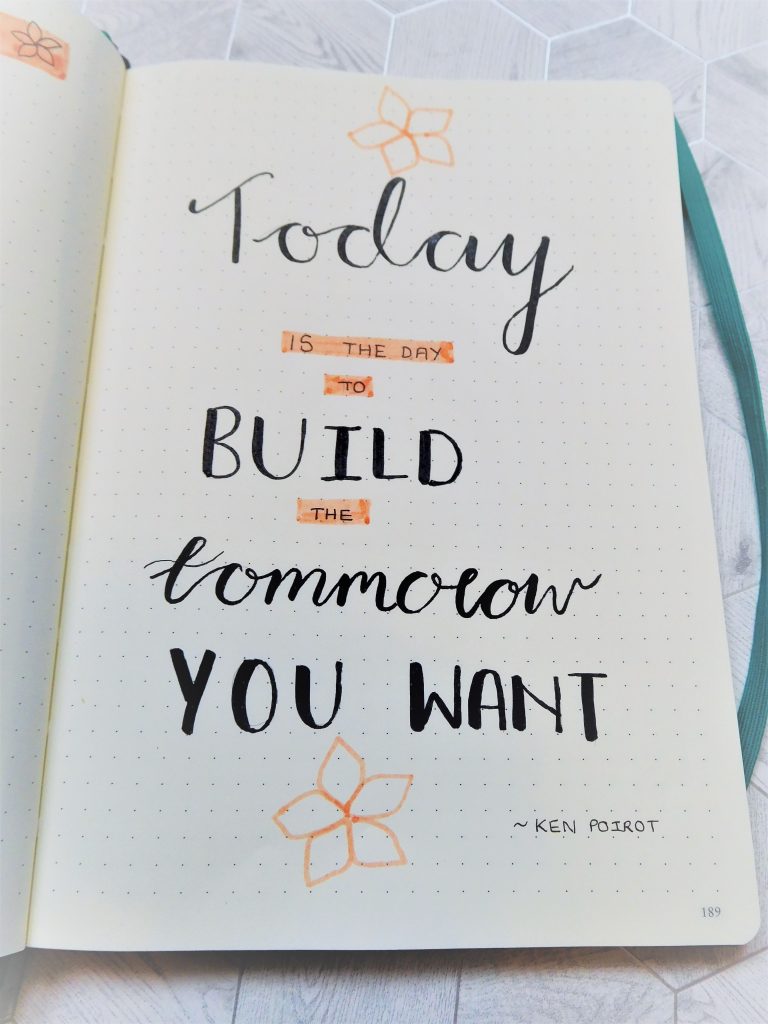 Today
IS THE DAY
TO
BUILD
THE
tommorow
YOU WANT
~ KEN POIROT
189